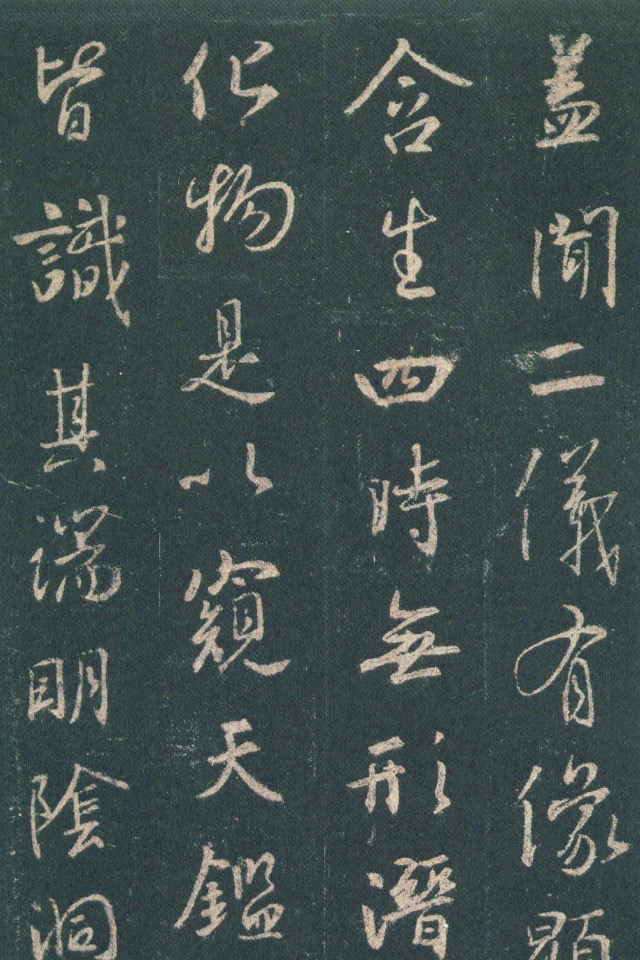 盖聞二儀有像顯
含生四時無形潛
化物是以窺天鑑
皆識其端明陰洞